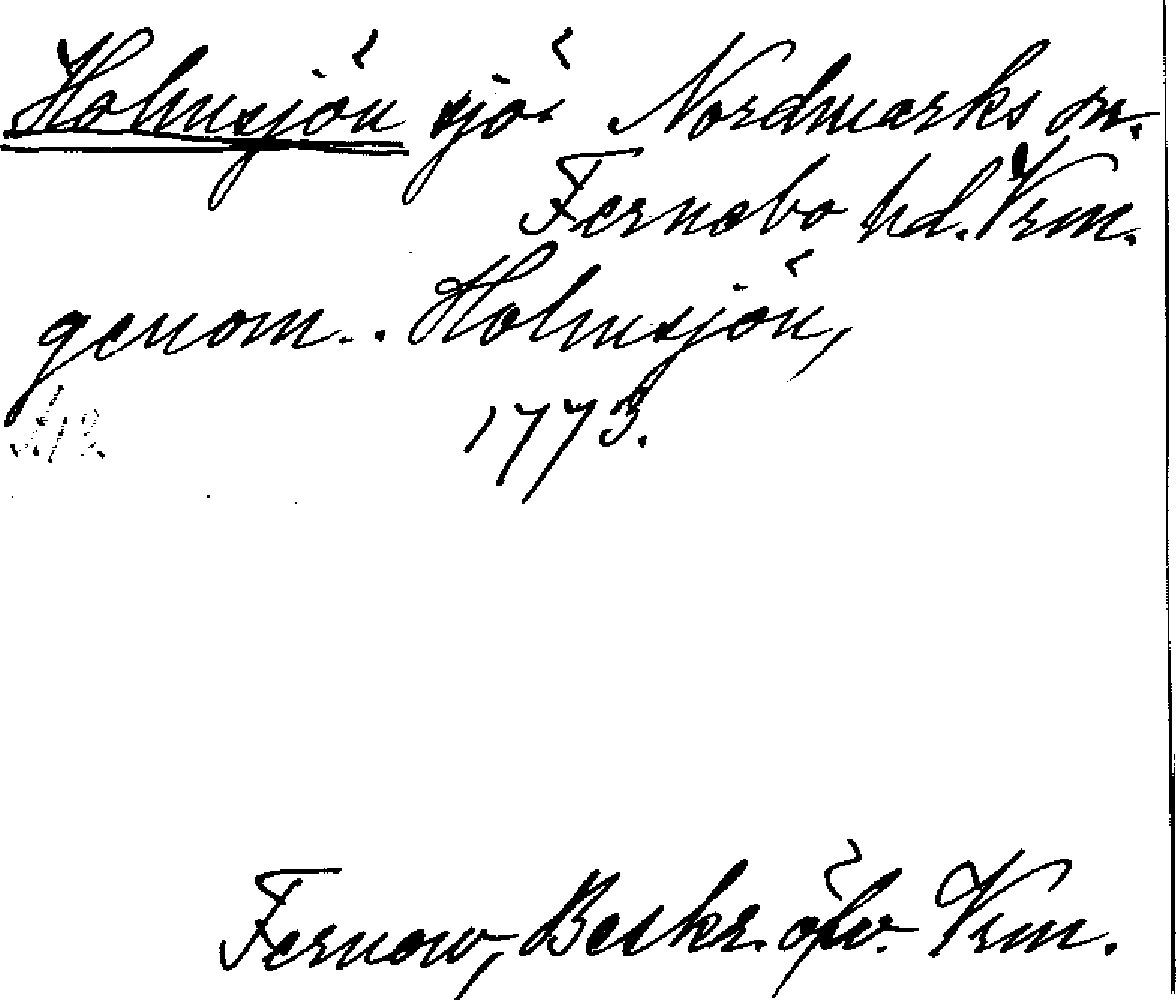 Holmsjön sjö Nordmarks sn.
Fernebo hd. Vrm.
genom.. Holmsjön,
1773.
Fernow, Beskr. öfv. Vrm.